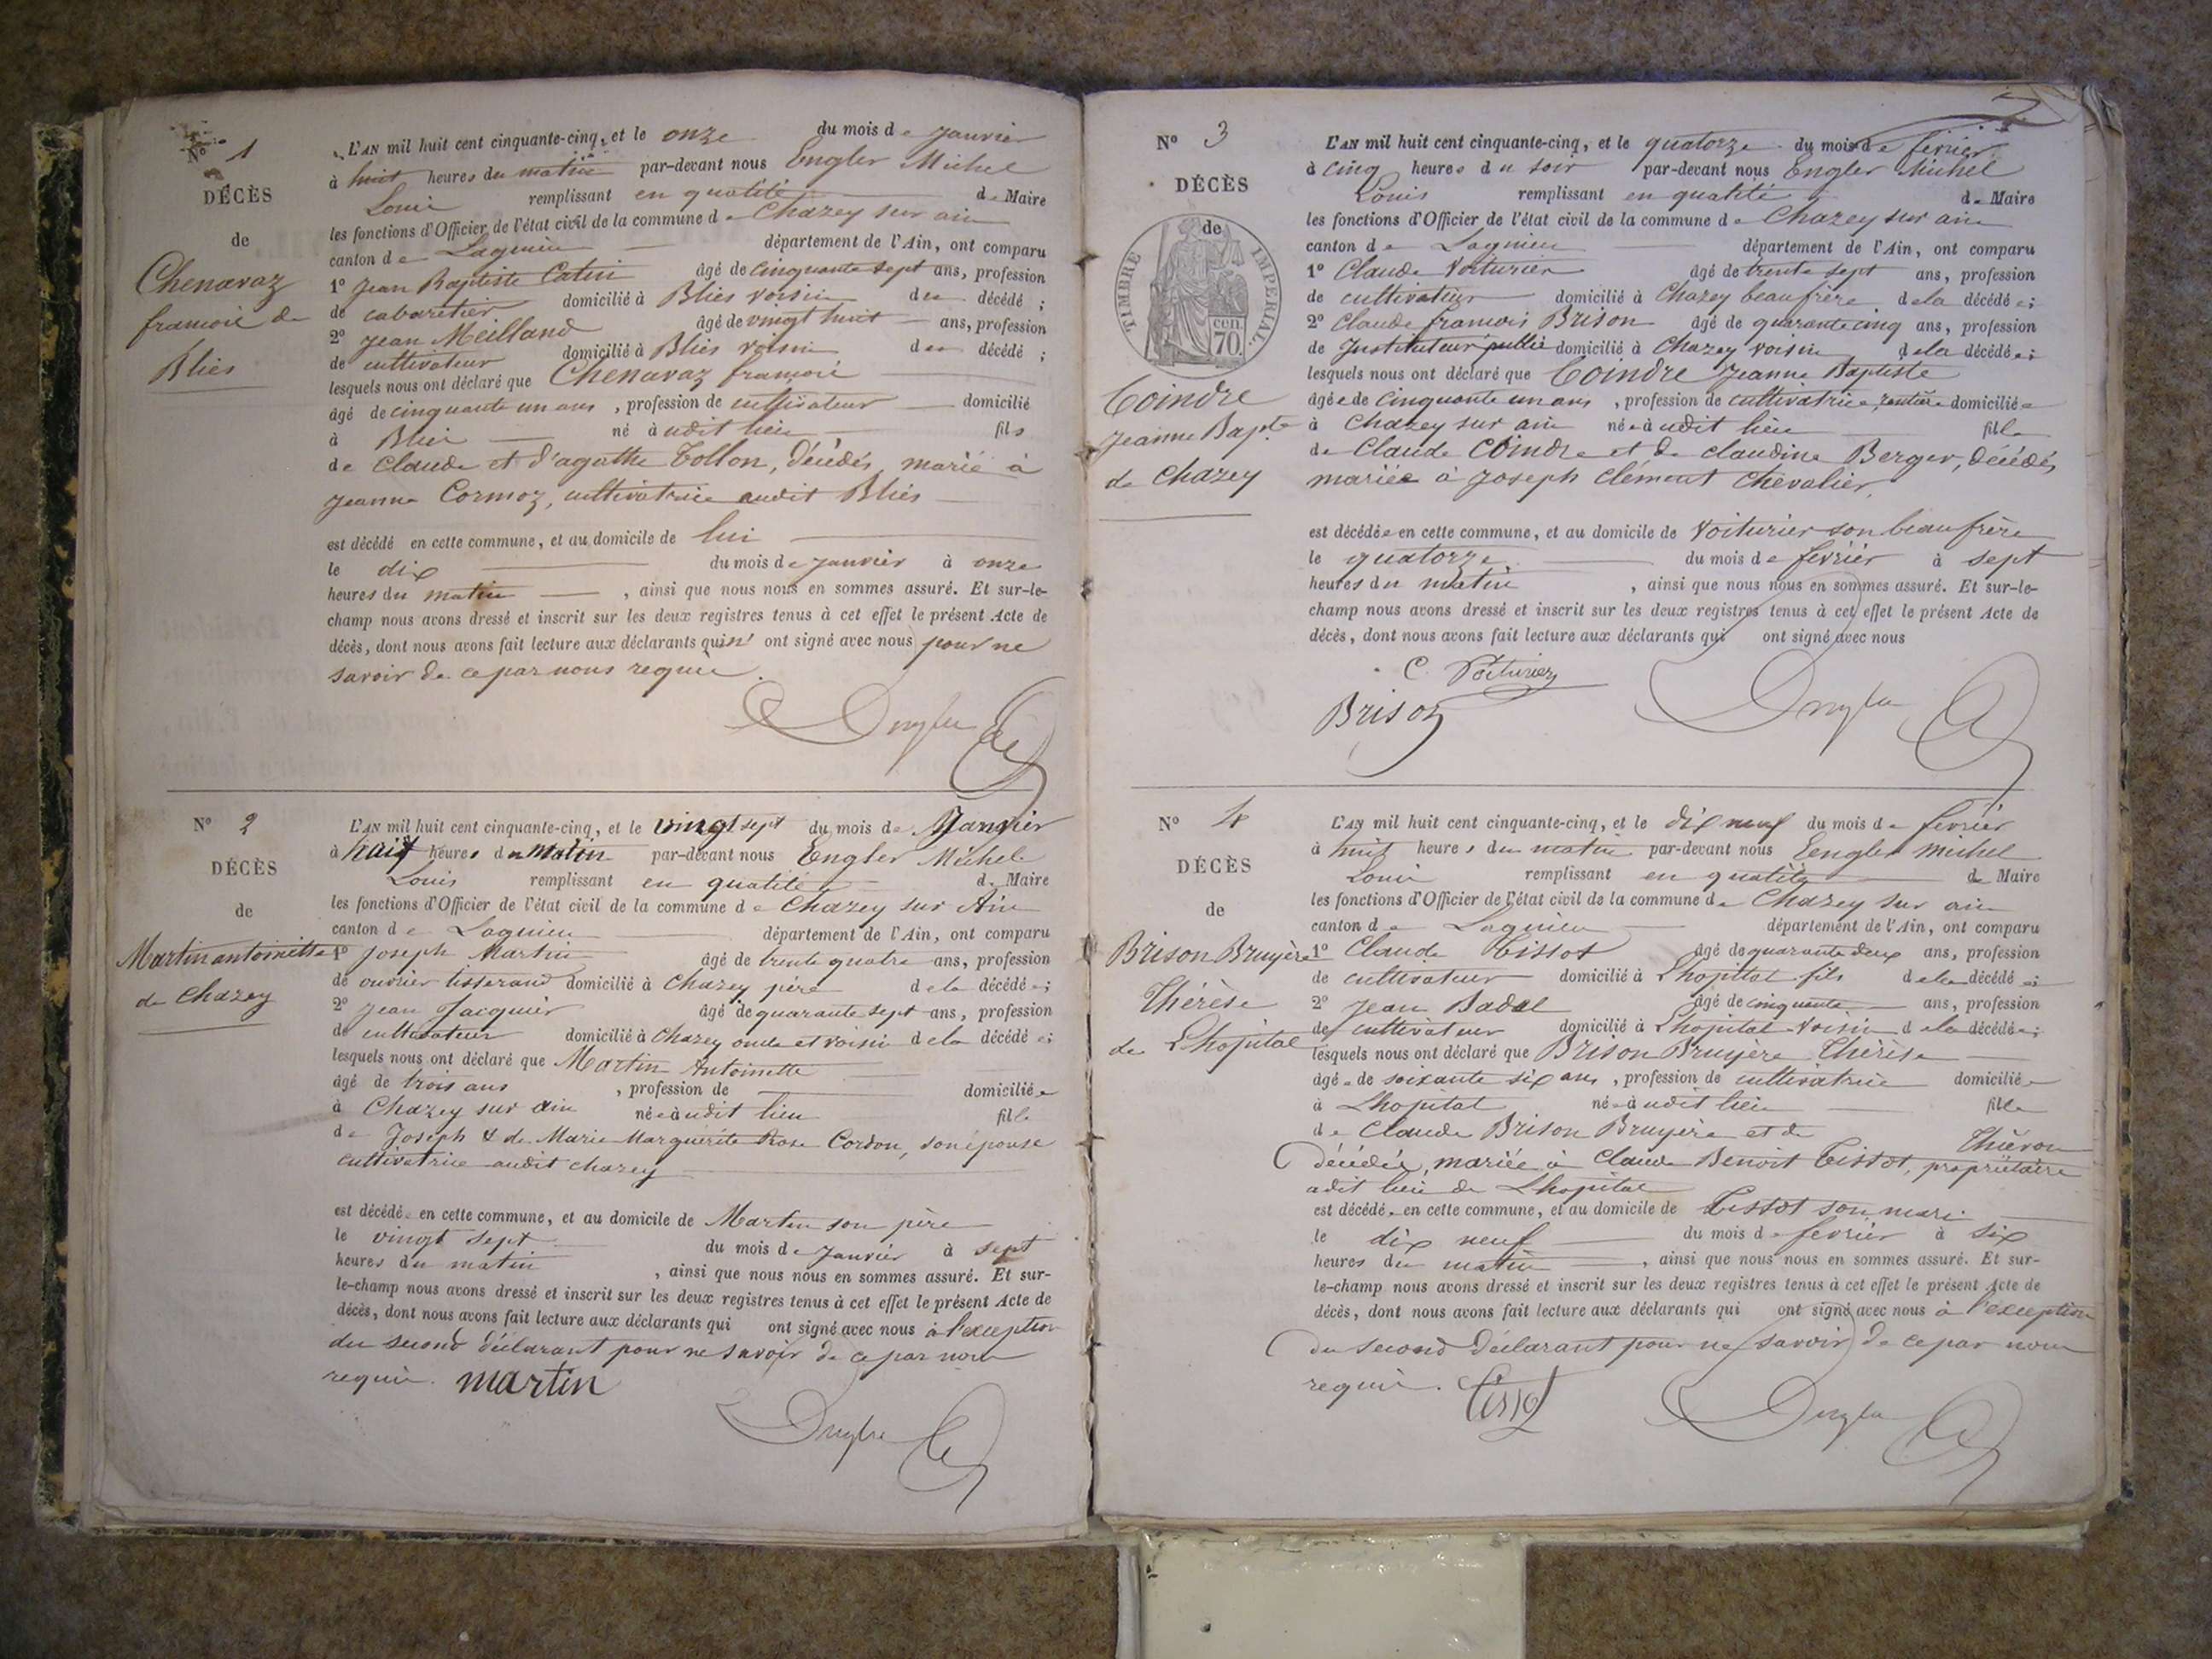 N° 1
DÉCÈS
de
Chenavaz
francois de
Blies
L'AN mil huit cent cinquante-cinq, et le onze du mois de janvier
à huit heures du matin par-devant nous Engler Michel
Louis remplissant en qualité de Maire
les fonctions d'Officier de l'état civil de la commune de Chazey sur ain
canton de Lagnieu département de l'Ain, ont comparu
1° Jean Baptiste Catin âgé de cinquante sept ans, profession
de cabaretier domicilié à Blies voisin du décédé ;
2° Jean Meilland âgé de vingt huit ans, profession
de cultivateur domicilié à Blies voisin du décédé ;
lesquels nous ont déclaré que Chenavaz francois
âgé de cinquante un ans, profession de cultivateur domicilié
à Blies né à udit lieu fils
de Claude et d'agathe Tollon, décédés, marié à
Jeanne Cormoz, cultivatrice audit Bliès
est décédé en cette commune, et au domicile de lui
le dix du mois de janvier à onze
heures du matin, ainsi que nous nous en sommes assuré. Et sur-le-
champ nous avons dressé et inscrit sur les deux registres tenus à cet effet le présent Acte de
décès, dont nous avons fait lecture aux déclarants qui n' ont signé avec nous pour ne
savoir de ce par nous requis.
Engler
N° 2
DÉCÈS
de
Martin antoinette
de Chazey
L'AN mil huit cent cinquante-cinq, et le vingt sept du mois de Janvier
à huit heures du matin par-devant nous Engler Michel
Louis remplissant en qualité de Maire
les fonctions d'Officier de l'état civil de la commune de Chazey sur Ain
canton de Lagnieu département de l'Ain, ont comparu
1° Joseph Martin âgé de trente quatre ans, profession
de ouvrier tisserand domicilié à Chazey père de la décédée ;
2° Jean Jacquier âgé de quarante sept ans, profession
de cultivateur domicilié à Chazey oncle et voisin de la décédée ;
lesquels nous ont déclaré que Martin Antoinette
âgé de trois ans, profession de domiciliée
à Chazey sur ain née à udit lieu fille
de Joseph & de Marie Marguerite Rose Cordon, son épouse
cultivatrice audit chazey
est décédée en cette commune, et au domicile de Martin son père
le vingt sept du mois de Janvier à sept
heures du matin, ainsi que nous nous en sommes assuré. Et sur-
le-champ nous avons dressé et inscrit sur les deux registres tenus à cet effet le présent Acte de
décès, dont nous avons fait lecture aux déclarants qui ont signé avec nous à l'exception
du second déclarant pour ne savoir de ce par nous
requis. martin
Engler
N° 3
DÉCÈS
de
TIMBRE IMPÉRIAL
cen. 70.
Coindre
Jeanne Bapte
de Chazey
L'AN mil huit cent cinquante-cinq, et le quatorze du mois de février
à cinq heures du soir par-devant nous Engler Michel
Louis remplissant en qualité de Maire
les fonctions d'Officier de l'état civil de la commune de Chazey sur ain
canton de Lagnieu département de l'Ain, ont comparu
1° Claude Voiturier âgé de trente sept ans, profession
de cultivateur domicilié à Chazey beau frère de la décédée ;
2° Claude francois Brison âgé de quarante cinq ans, profession
de Instituteur public domicilié à Chazey voisin de la décédée ;
lesquels nous ont déclaré que Coindre Jeanne Baptiste
âgée de cinquante un ans, profession de cultivatrice, rentière domiciliée
à Chazey sur ain née à udit lieu fille
de Claude Coindre et de claudine Berger, décédés,
mariée à Joseph Clément Chevalier,
est décédée en cette commune, et au domicile de Voiturier son beau frère
le quatorze du mois de février à sept
heures du matin, ainsi que nous nous en sommes assuré. Et sur-le-
champ nous avons dressé et inscrit sur les deux registres tenus à cet effet le présent Acte de
décès, dont nous avons fait lecture aux déclarants qui ont signé avec nous
C. Voiturier
Brison Engler
N° 4
DÉCÈS
de
Brison Bruyère
Thérèse
de Lhopital
L'AN mil huit cent cinquante-cinq, et le dix neuf du mois de février
à huit heures du matin par-devant nous Engler Michel
Louis remplissant en qualité de Maire
les fonctions d'Officier de l'état civil de la commune de Chazey sur ain
canton de Lagnieu département de l'Ain, ont comparu
1° Claude Tissot âgé de quarante deux ans, profession
de cultivateur domicilié à Lhopital fils de la décédée ;
2° Jean Badal âgé de cinquante ans, profession
de cultivateur domicilié à Lhopital voisin de la décédée ;
lesquels nous ont déclaré que Brison Bruyère Thérèse
âgée de soixante six ans, profession de cultivatrice domiciliée
à Lhopital née à udit lieu fille
de Claude Brison Bruyère et de Thiévon
décédés, mariée à Claude Benoit Tissot, propriétaire
adit lieu de Lhopital
est décédée en cette commune, et au domicile de Tissot son mari
le dix neuf du mois de février à six
heures du matin, ainsi que nous nous en sommes assuré. Et sur-
le-champ nous avons dressé et inscrit sur les deux registres tenus à cet effet le présent Acte de
décès, dont nous avons fait lecture aux déclarants qui ont signé avec nous à l'exception
du second déclarant pour ne savoir de ce par nous
requis. Tissot
Engler